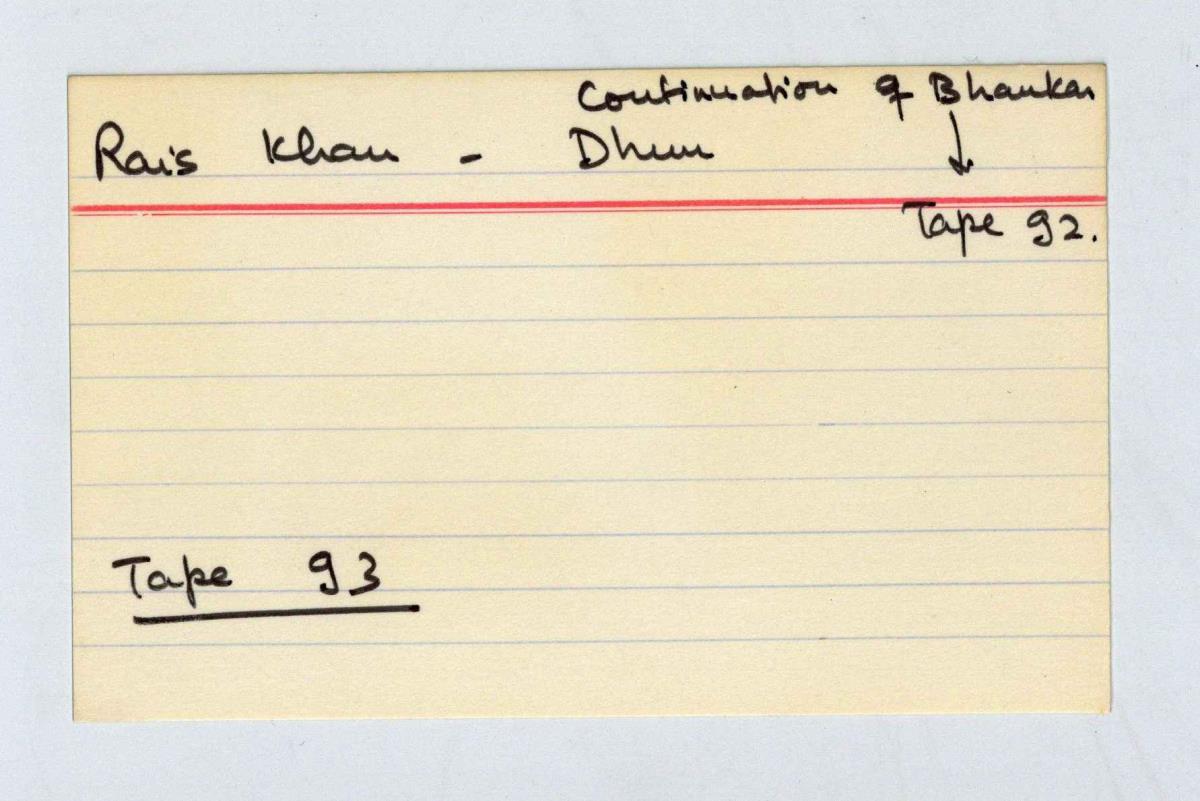 Continuation of Bhankar
Rais Khan - Dhun
↓
Tape 92.
Tape 93